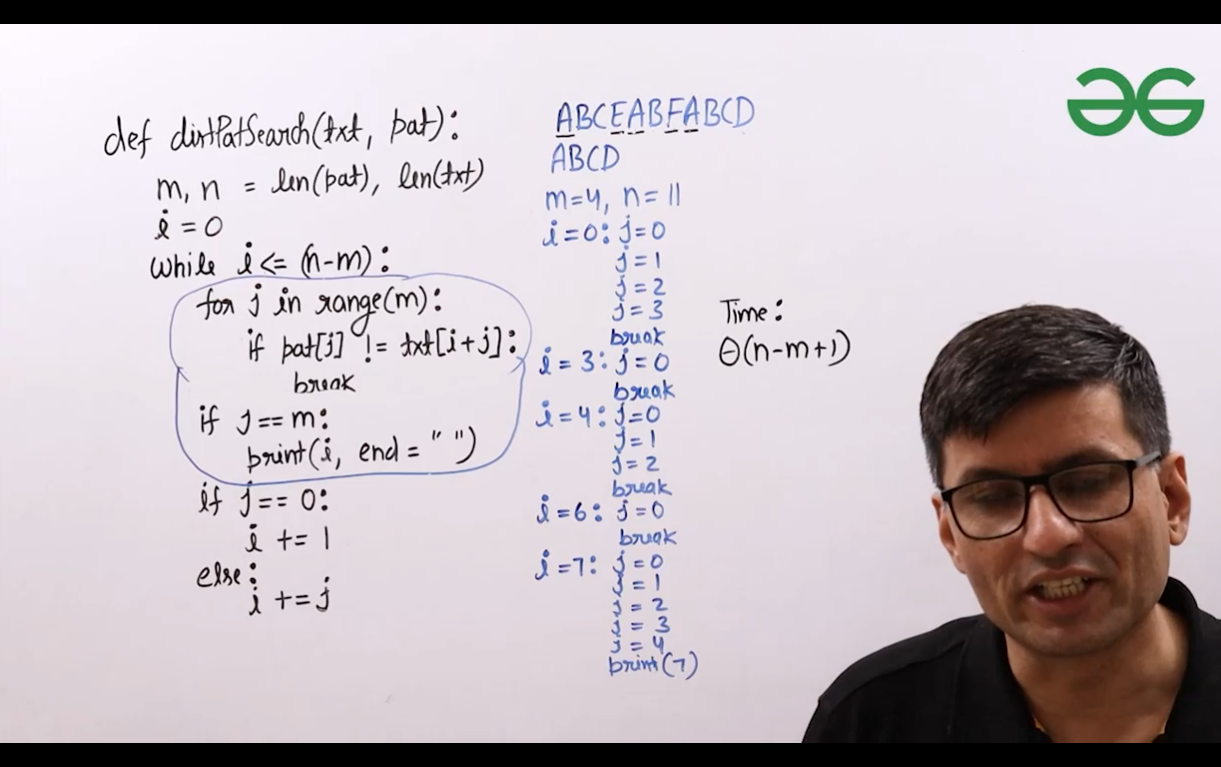 def distPatSearch(txt, pat):
m, n = len(pat), len(txt)
i = 0
while i <= (n-m):
for j in range(m):
if pat[j] != txt[i+j]:
break
if j == m:
print(i, end = " ")
if j == 0:
i += 1
else:
i += j
ABCEABFABCD
ABCD
m=4, n=11
i=0: j=0
j=1
j=2
j=3
break
i=3: j=0
break
i=4: j=0
j=1
j=2
break
i=6: j=0
break
i=7: j=0
j=1
j=2
j=3
j=4
print(7)
Time:
Θ(n-m+1)